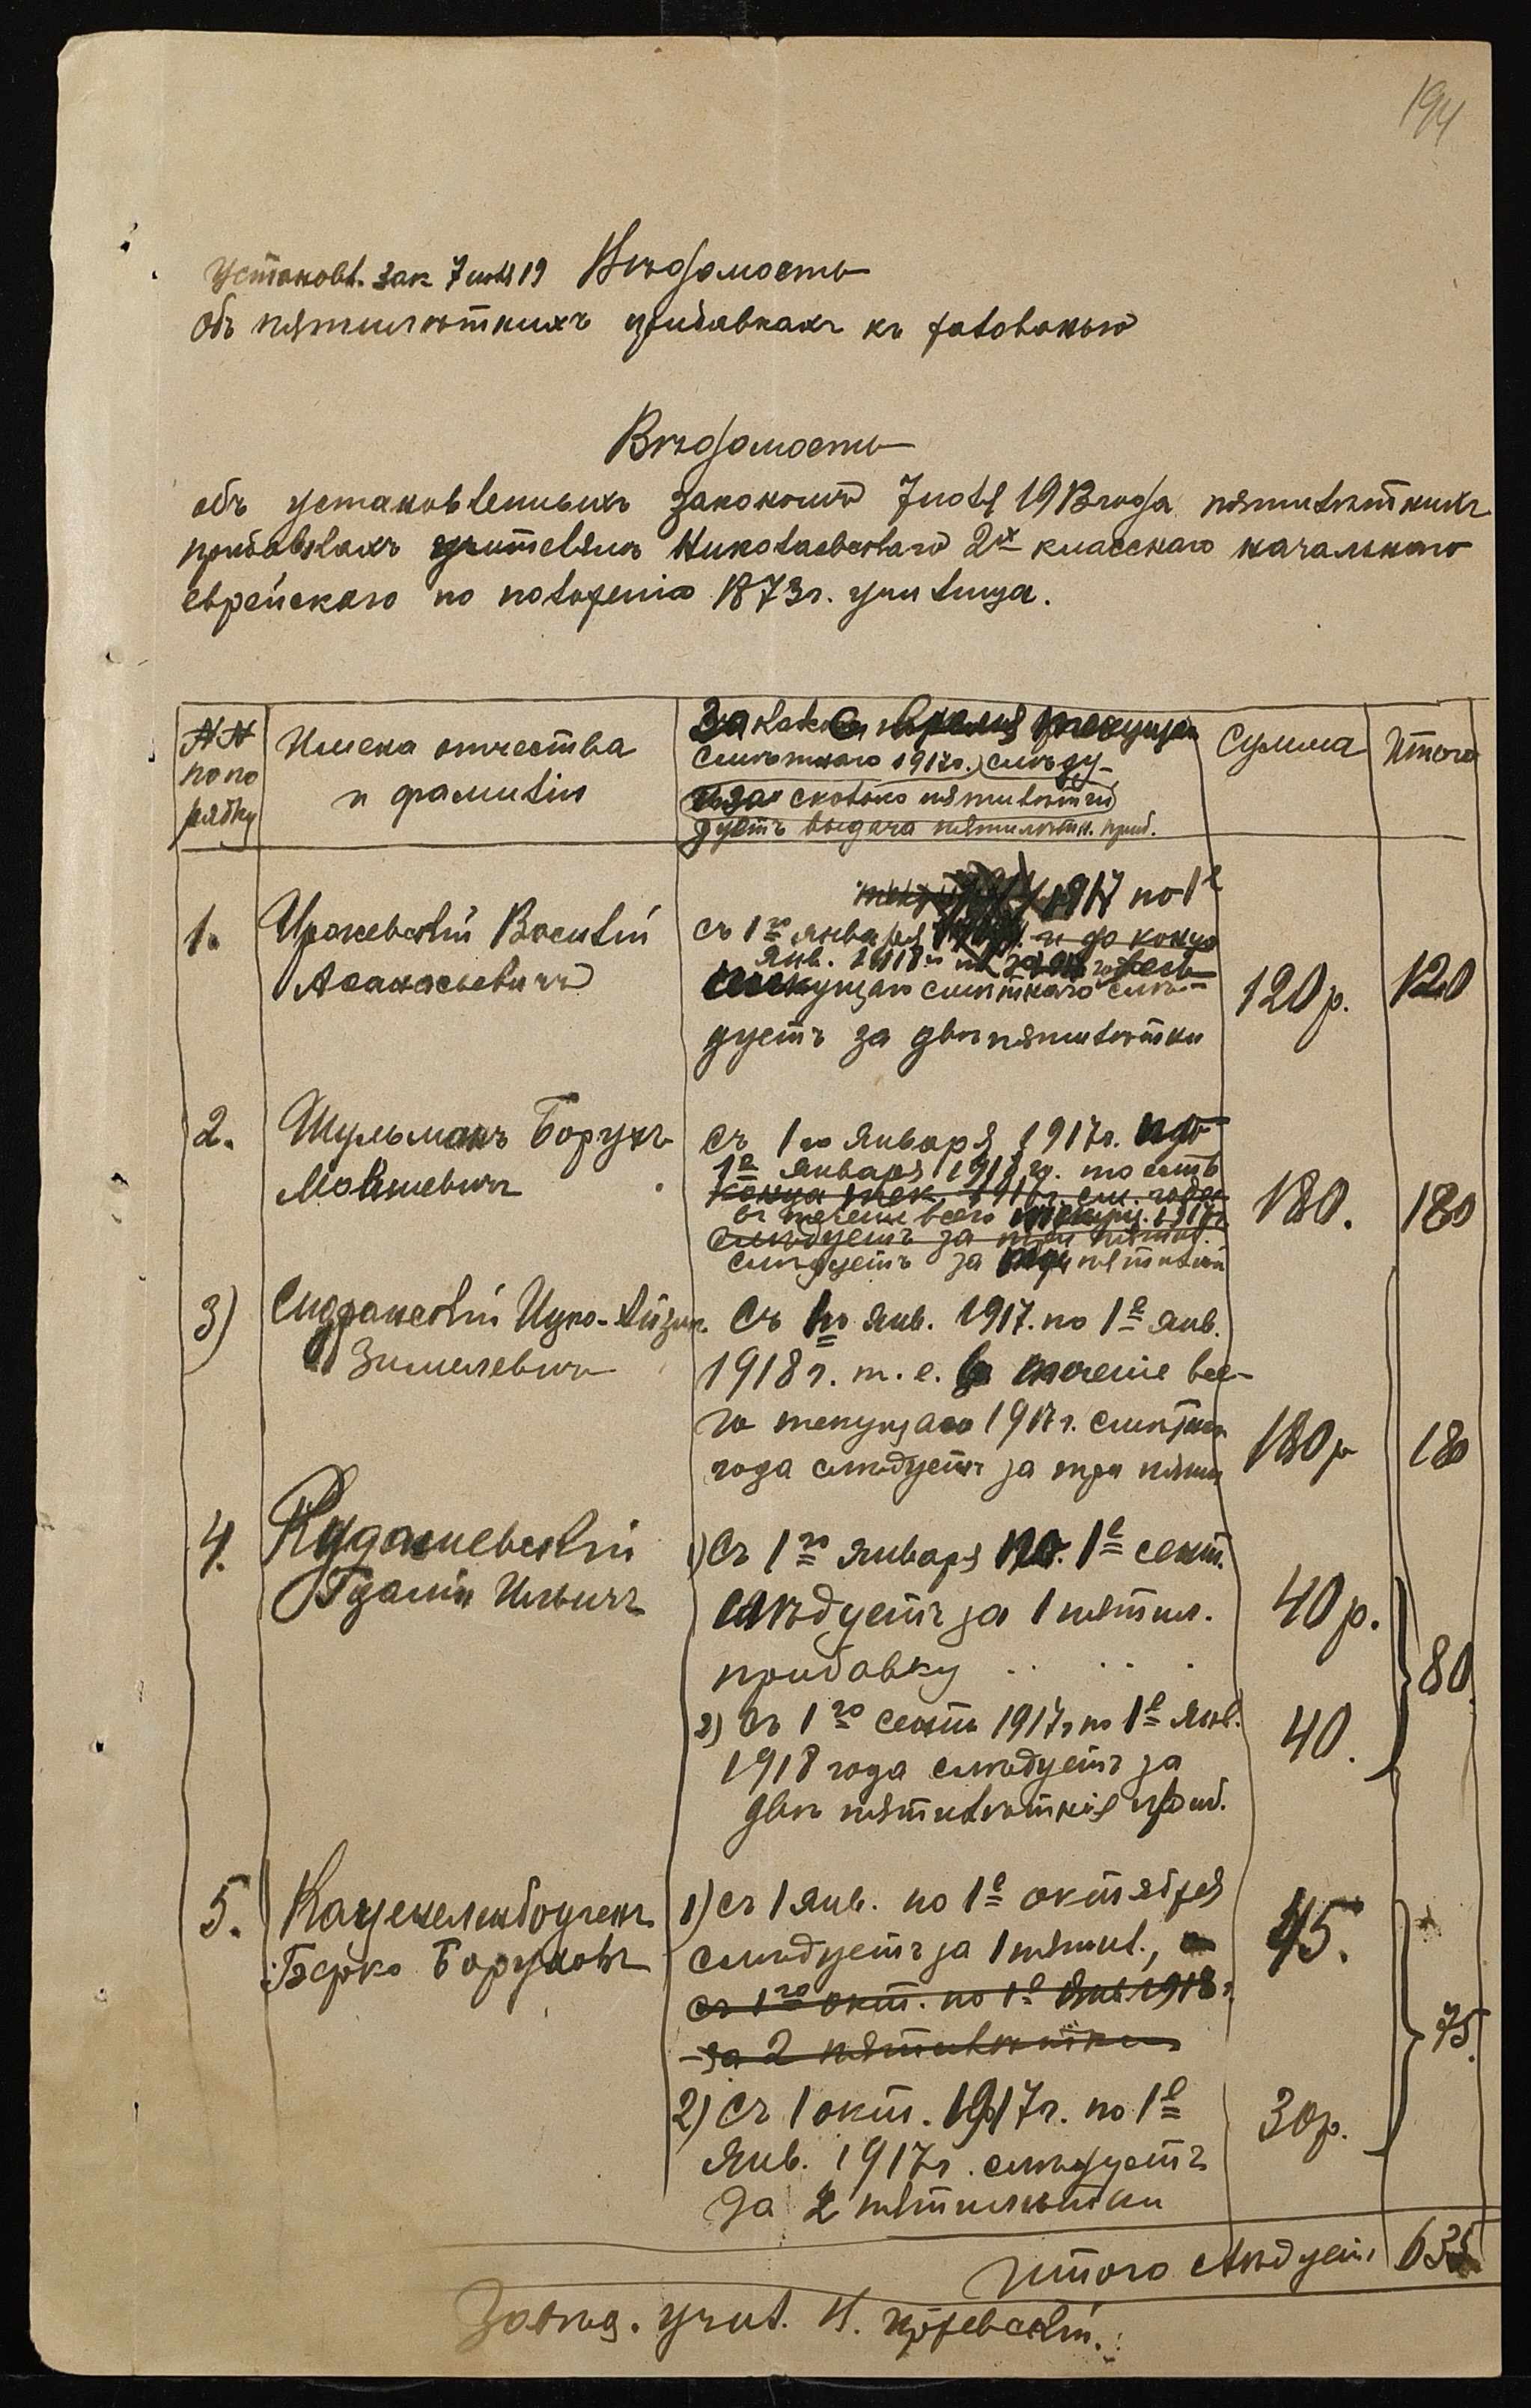 194
Установл. зак 7 июля 19 Вѣдомость
Объ пятилѣтнихъ прибавкахъ къ жалованью
Вѣдомость
объ установленныхъ закономъ 7 июля 1913 года пятилѣтнихъ
прибавкахъ учителямъ Николаевскаго 2х классного начальнаго
еврейскаго по положенію 1873 г. училища.
№№ по порядку
Имена отчества и фамиліи
За какое время текущаго
смѣтнаго 1917 г. слѣду-
и за сколько пятилѣтій
дуетъ выдача пятилѣтн. приб.
Сумма
Итого
1. Василій
Аѳанасьевичъ
1917 по 1е
съ 1го января и до конца
янв. 1918
текущаго смѣтнаго слѣ-
дуетъ за двѣ пятилѣтки
120 р. 120
2. Шульманъ Борухъ
Мовшевичъ
Съ 1го Января 1917 г. по
1е января 1918 г. то есть
конца тек. 1916 г. см. года
въ теченіе всего текущ. 1917
слѣдуетъ за три пятил.
слѣдуетъ за три пятилѣтія
180. 180
3) Ицко-Айзик
Зимелевичъ
Съ 1го янв. 1917. по 1е янв.
1918 г. т. е. въ теченіе все-
го текущаго 1917 г. смѣтнаго
года слѣдуетъ за три пятил
180 р 180
4. Кудашевскій
Ильичъ
1) Съ 1го января по 1е сент.
слѣдуетъ за 1 пятил.
прибавку . . . .
40 р.
2) Съ 1го сент 1917 г. по 1е янв.
1918 года слѣдуетъ за
двѣ пятилѣтнія приб.
40. 80
5. Каценеленбогенъ
Берко Боруховъ
1) съ 1 янв. по 1е октября
слѣдуетъ за 1 пятил., а
съ 1го окт. по 1е янв. 1918 г.
– за 2 пятилѣтки
45.
2) Съ 1 окт. 1917 г. по 1е
янв. 1917 г. слѣдуетъ
за 2 пятилѣтки
30 р. 75.
Итого слѣдуетъ 635
Завѣд. учил.